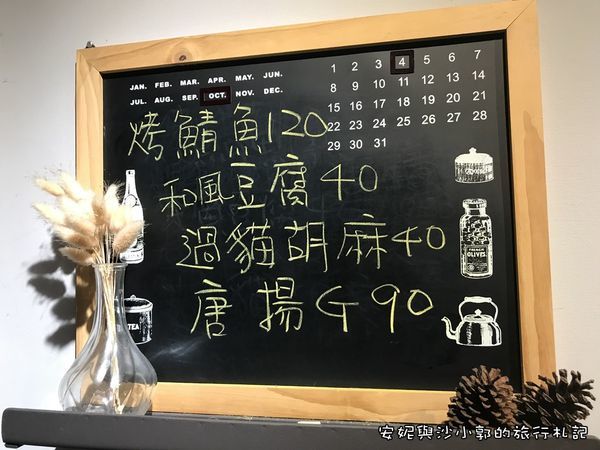 JAN. FEB. MAR. APR. MAY. JUN.
JUL. AUG. SEP. OCT. NOV. DEC.
1 2 3 4 5 6 7
8 9 10 11 12 13 14
15 16 17 18 19 20 21
22 23 24 25 26 27 28
29 30 31
烤鯖魚120
和風豆腐40
過貓胡麻40
唐揚G90
TEA
FRENCH
OLIVES
安妮與沙小郭的旅行札記